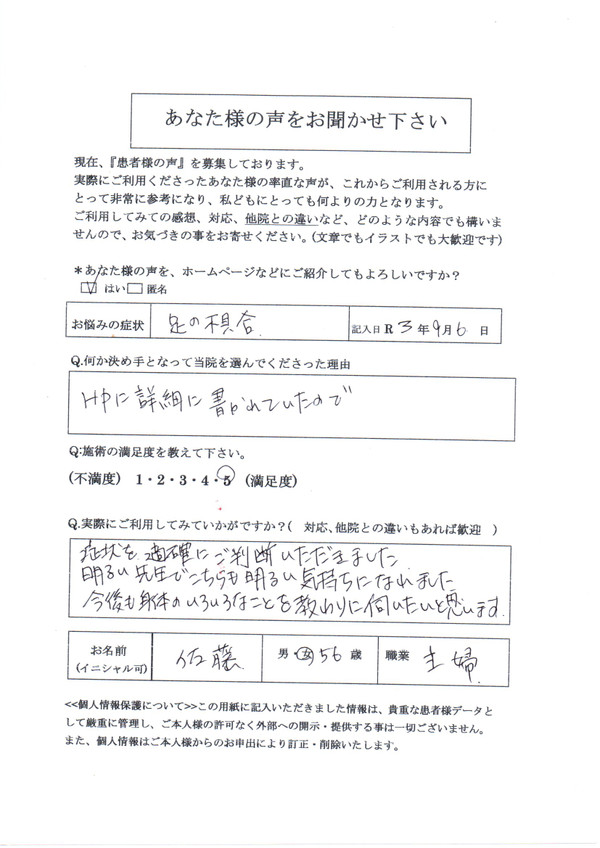 あなた様の声をお聞かせ下さい
現在、『患者様の声』を募集しております。
実際にご利用くださったあなた様の率直な声が、これからご利用される方に
とって非常に参考になり、私どもにとっても何よりの力となります。
ご利用してみての感想、対応、他院との違いなど、どのような内容でも構いま
せんので、お気づきの事をお寄せください。(文章でもイラストでも大歓迎です)
*あなた様の声を、ホームページなどにご紹介してもよろしいですか?
☑はい□匿名
お悩みの症状 足の具合 記入日 R 3 年 9 月 6 日
Q.何か決め手となって当院を選んでくださった理由
HPに詳細に書かれていたので
Q:施術の満足度を教えて下さい。
(不満度) 1・2・3・4・5 (満足度)
Q.実際にご利用してみていかがですか?( 対応、他院との違いもあれば歓迎 )
症状を適確にご判断いただきました
明るい先生でこちらも明るい気持ちになれました
今後も身体のいろいろなことを教わりに伺いたいと思います.
お名前 佐藤 男・女 56 歳 職業 主婦
(イニシャル可)
<<個人情報保護について>>この用紙に記入いただきました情報は、貴重な患者様データと
して厳重に管理し、ご本人様の許可なく外部への開示・提供する事は一切ございません。
また、個人情報はご本人様からのお申出により訂正・削除いたします。